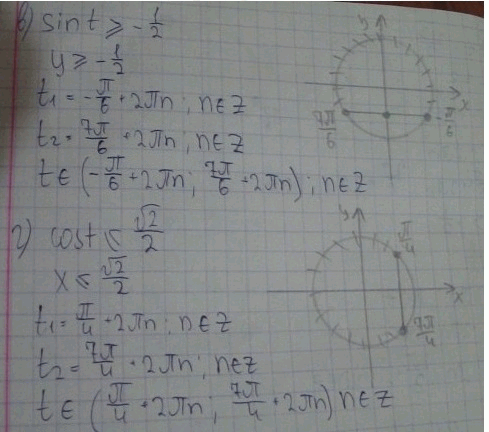 в) sin t ⩾ -1/2
y ⩾ -1/2
t₁ = -π/6 + 2πn; n∈Z
t₂ = 7π/6 + 2πn; n∈Z
t∈ (-π/6 + 2πn; 7π/6 + 2πn); n∈Z
y
x
7π/6
-π/6
г) cost ⩽ √2/2
x ⩽ √2/2
t₁ = π/4 + 2πn; n∈Z
t₂ = 7π/4 + 2πn; n∈Z
t∈ (π/4 + 2πn; 7π/4 + 2πn) n∈Z
y
π/4
x
7π/4